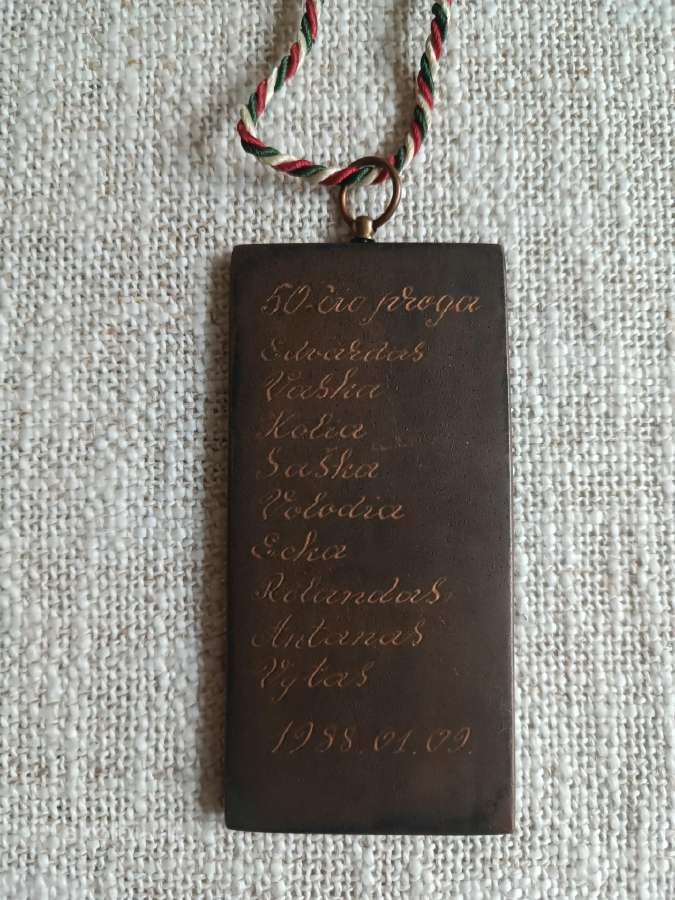 50-čio proga
Edvardas
Vaska
Kolia
Saška
Volodia
Ecka
Rolandas
Antanas
Vytas
1988.01.09.